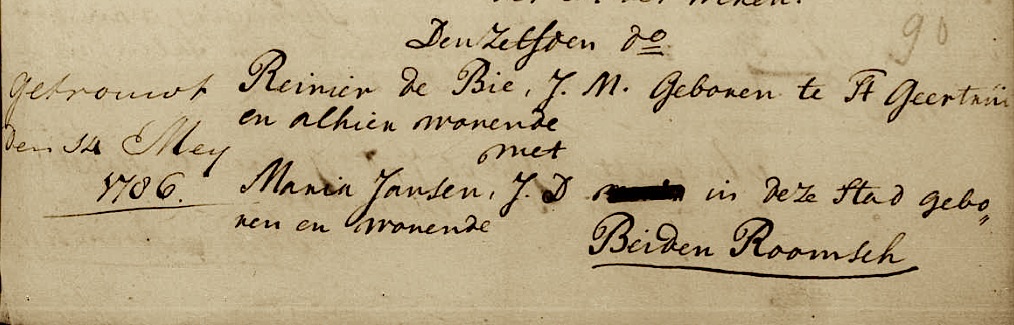 90
Den Zelfden do
getrouwt
den 14 Mey
1786.
Reinier de Bie, J. M. Geboren te St Geertrui
en alhier wonende
met
Maria Jansen, J. D in deze Stad gebo„
ren en wonende
Beiden Roomsch